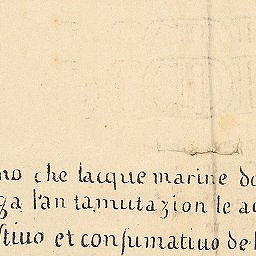 no che lacque marine do
ga l'an tamutazion le ac
stiuo et consumatiuo de l